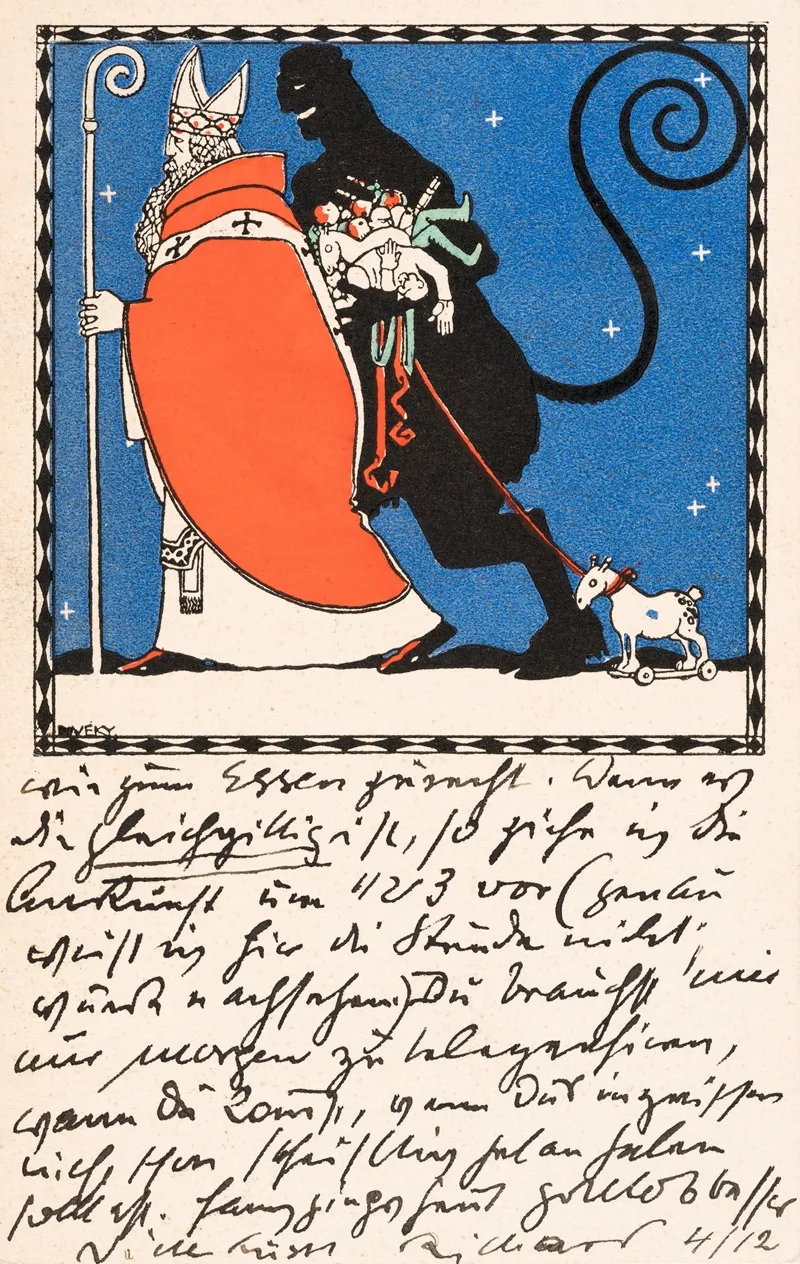 DIVÉKY.
zum Essen zurecht. Wenn es
dir gleichgiltig ist, so ziehe ich die
Ankunft um 1/2 3 vor (genau
weiß ich hier die Stunde nicht,
nachsehen.) Du brauchst mir
nur morgen zu telegrafieren,
wann Du kommst, wenn Du's inzwischen
nicht schon schriftlich getan haben
solltest. Fanny gings heut gottlob besser
Viele Küsse Richard 4/12